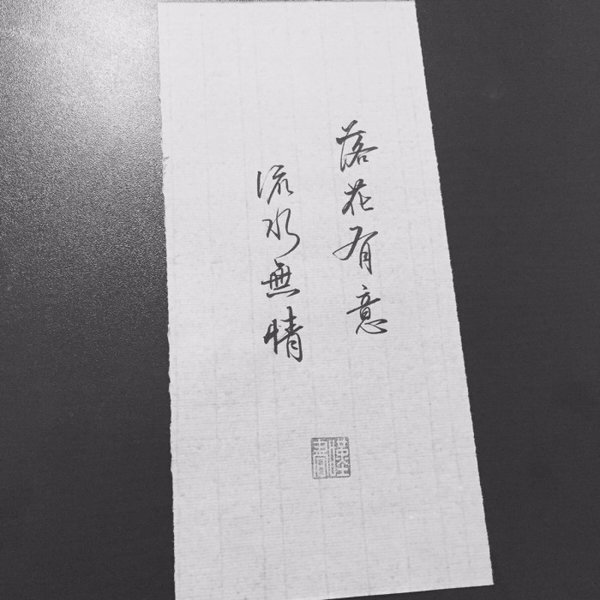 落花有意
流水無情